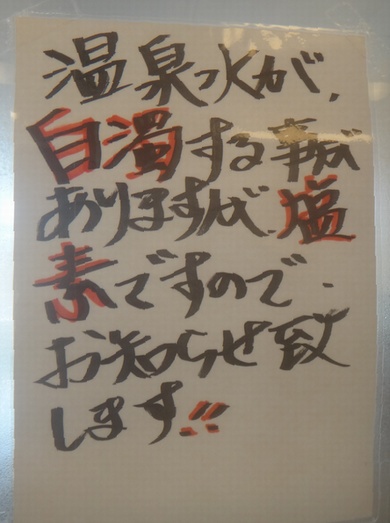 温泉水が、
白濁する事が
ありますが、塩
素ですので、
お知らせ致
します!!